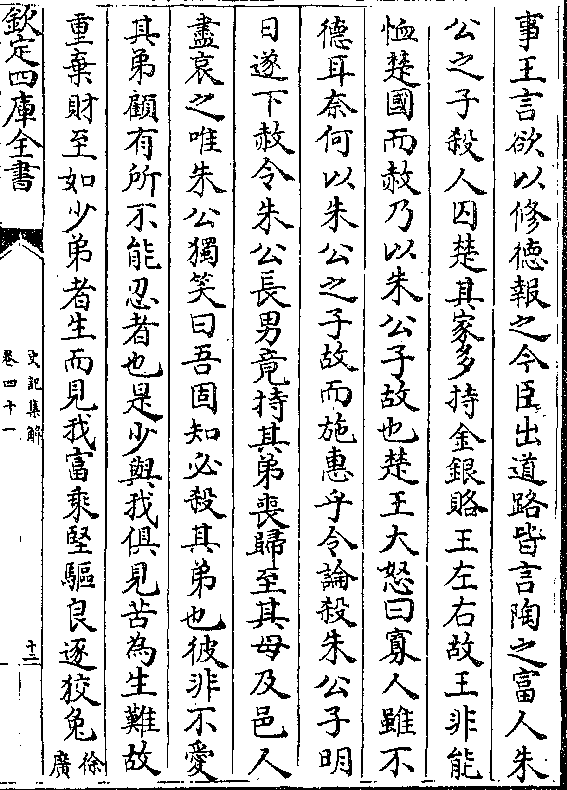 事王言欲以修德報之今臣出道路皆言陶之富人朱
公之子殺人囚楚其家多持金銀賂王左右故王非能
恤楚國而赦乃以朱公子故也楚王大怒曰寡人雖不
德耳奈何以朱公之子故而施惠乎令論殺朱公子明
日遂下赦令朱公長男竟持其弟喪歸至其母及邑人
盡哀之唯朱公獨笑曰吾固知必殺其弟也彼非不愛
其弟顧有所不能忍者也是少與我俱見苦為生難故
重棄財至如少弟者生而見我富乘堅驅良逐狡兔徐廣
欽定四庫全書
史記集解
卷四十一
十二